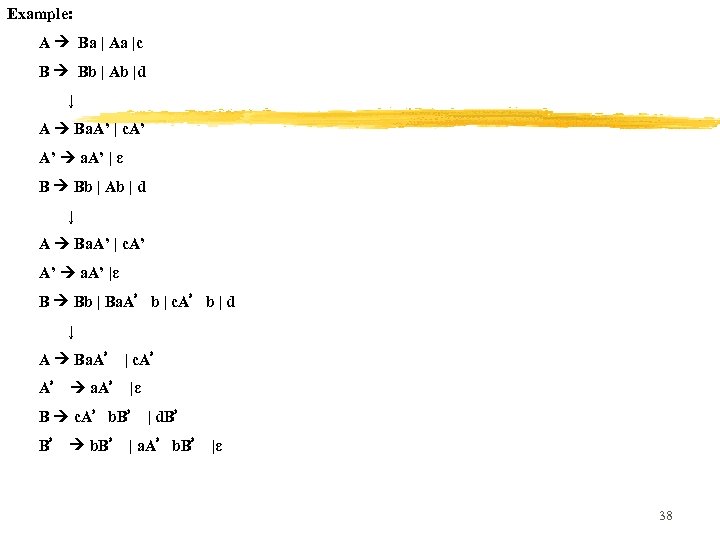 Example:
A → Ba | Aa |c
B → Bb | Ab |d
↓
A → Ba.A’ | c.A’
A’ → a.A’ | ε
B → Bb | Ab | d
↓
A → Ba.A’ | c.A’
A’ → a.A’ |ε
B → Bb | Ba.A’ b | c.A’ b | d
↓
A → Ba.A’ | c.A’
A’ → a.A’ |ε
B → c.A’ b.B’ | d.B’
B’ → b.B’ | a.A’ b.B’ |ε
38